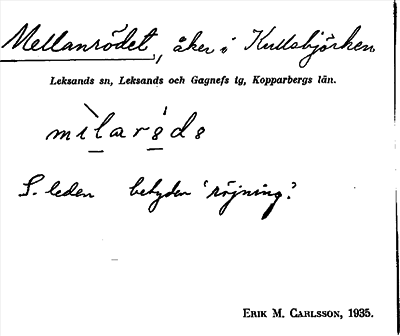 Mellanrödet, åker i Kullsbjörken
Leksands sn, Leksands och Gagnefs tg, Kopparbergs län.
S. leden betyder 'röjning.'
ERIK M. CARLSSON, 1935.